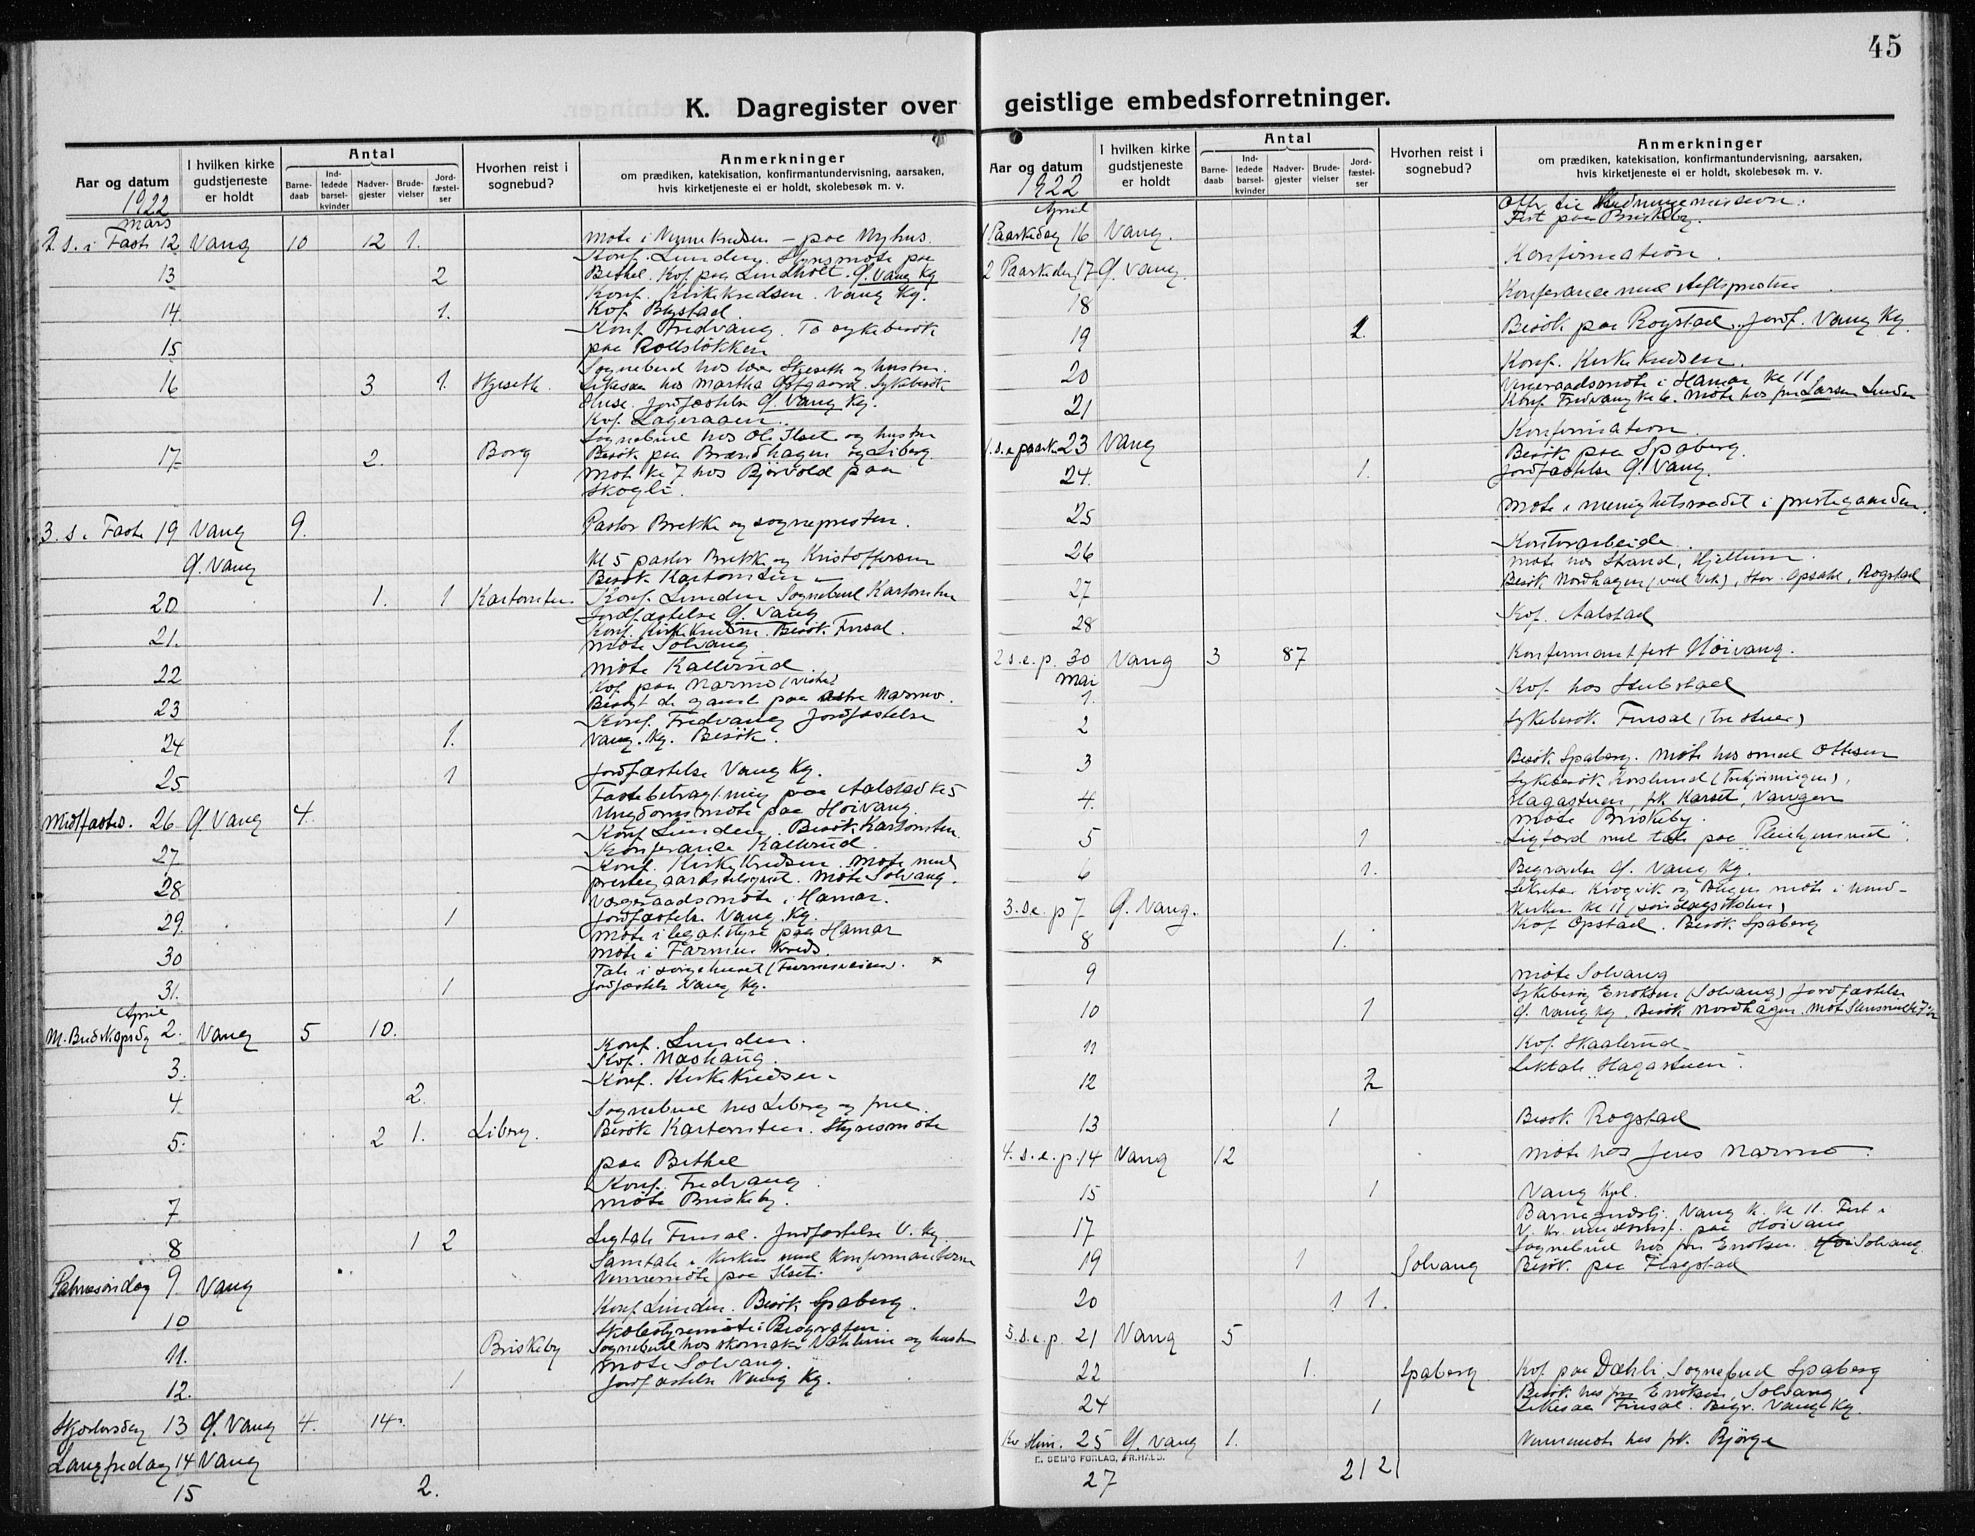 45
K. Dagregister over geistlige embedsforretninger.
Aar og datum
I hvilken kirke gudstjeneste er holdt
Antal
Barne-daab
Ind-ledede barsel-kvinder
Nadver-gjester
Brude-vielser
Jord-fæstel-ser
Hvorhen reist i sognebud?
Anmerkninger
om prædiken, katekisation, konfirmantundervisning, aarsaken,
hvis kirketjeneste ei er holdt, skolebesøk m. v.
1922
mars
2. s. i Faste 12 Vang 10 12 1. Møte i kredsen – paa Nyhus.
Konf. Lunden. Styresmøte paa
13 2 Bethel. Kof. paa Lindholt. Ø. Vang Kg
Konf. Kirkekredsen. Vang Kg.
14 1. Kof. Bystad
Konf. Fredvang. To sykebesøk
15 paa Rollsløkken
Sognebud hos Skjeseth og hustru.
16 3 1. Skjeseth. hos Martha Sykebesøk
Jordfæstelse Ø. Vang Kg.
Kof. Lageraaen.
Sognebud hos Ole Ilset og hustru
17. 2. Borg Besøk paa Brændhagen og Liberg.
Møte kl 7 hos Bjørvold paa
Skogli.
3. s. i Faste 19 Vang 9. Pastor Brekke og sognepresten.
Ø. Vang kl 5 pastor Brekke og Kristoffersen
Besøk Kartomten
20 1. 1 Kartomten Konf. Lunden Sognebud Kartomten
Jordfæstelse Ø. Vang
21. Konf. Kirkekredsen. Besøk Finsal.
Møte Solvang
22 Møte Kallerud.
Kof. paa Narmo
23 Besøgt de gamle paa Narmo.
Konf. Fredvang Jordfæstelse
24 1. Vang. Kg. Besøk.
25 1 Jordfæstelse Vang Kg.
Fastebetragtning paa Aalstad kl 5
Midfaste. 26 Ø. Vang 4. Ungdomsmøte paa Høivang.
Konf. Lunden. Besøk Kartomten.
27 Konferance Kallerud.
Konf. Kirkekredsen. Møte med
28 prestegaardstilsynet. Møte Solvang.
Vergeraadsmøte i Hamar.
29. 1 Jordfæstelse Vang Kg.
Møte i legatstyre paa Hamar
30 Møte i Farmen kreds.
Tale i sørgehuset (Furnesveien).
31. 1 Jordfæstelse Vang Kg.
April
M. Budskapsdg 2. Vang 5 10. Konf. Lunden.
Kof. Nashaug.
3. Konf. Kirkekredsen
4 2. Sognebud hos Liberg og frue.
5. 2 1. Liberg. Besøk Kartomten. Styresmøte
paa Bethel
Konf. Fredvang
7 Møte Briskeby.
8 1 2 Ligtale Finsal. Jordfæstelse V. Kg.
Samtale i Kirken med Konfirmanterne
Palmesøndag 9. Vang Vennemøte paa Ilset.
10 Konf. Lunden. Besøk Spaberg.
Skolestyremøte i Biografen.
11. Briskeby Sognebud hos skomaker og hustru
Møte Solvang.
12. 1 Jordfæstelse Vang Kg.
Skjærtorsdag 13 Ø. Vang 4. 14.
Langfredag 14 Vang
15 2.
Aar og datum
I hvilken kirke gudstjeneste er holdt
Antal
Barne-daab
Ind-ledede barsel-kvinder
Nadver-gjester
Brude-vielser
Jord-fæstel-ser
Hvorhen reist i sognebud?
Anmerkninger
om prædiken, katekisation, konfirmantundervisning, aarsaken,
hvis kirketjeneste ei er holdt, skolebesøk m. v.
1922
April
Offr til Hedningemission.
Fest paa Briskeby.
1 Paaskedag 16 Vang. Konfirmation.
2 Paaskedag 17 Ø. Vang. Konferance med stiftsprosten
18
19 2. Besøk paa Rogstad. Jordf. Vang Kg.
Konf. Kirkekredsen.
20 Vergeraadsmøte i Hamar kl 11
21 Konf. Fredvang kl 6. Møte hos fru Larsen Lunden
Konfirmation.
1. s. e. paaske 23 Vang Besøk paa Spaberg.
24. 1. Jordfæstelse Ø. Vang.
25 Møte i menighetsraadet i prestegaarden.
26 Kontorarbeide.
Møte hos Strand, Hjellum.
27 Besøk Nordhagen (ved Vik), Opsahl, Rogstad
28 Kof. Aalstad
2 s. e. p. 30 Vang 3 87 Konfirmantfest Høivang.
mai
1. Kof. hos Hubstad
2 Sykebesøk Finsal (tre stuer)
3 Besøk Spaberg. Møte hos Ottesen
Sykebesøk Korslund
4. Hagastuen, frk Karset, Vangen
Møte Briskeby.
5 1 Ligfærd med tale paa
6 1. Begravelse Ø. Vang Kg.
Sekretær Krogvik og møte i
3. s. e. p 7 Ø. Vang. Kirken kl 11 (søndagsskolen)
8 1. Kof. Opstad. Besøk Spaberg
9 Møte Solvang
Sykebesøg Enoksen (Solvang) Jordfæstelse
10 1 Ø. Vang Kg. Besøk Nordhagen.
11 Kof. Skaalerud
Liktale Hagastuen.
12 2
13 1 Besøk Rogstad
4. s. e. p. 14 Vang 12 Møte hos Jens Narmo.
15 1 Vang Kpl.
Vang K. kl 11. Fest i
17 paa Høivang
Sognebud hos fru Enoksen Solvang
19 1 Solvang Besøk paa Flagstad
20 1 1.
5. s. e. p. 21 Vang 5
22 1. Spaberg Kof. paa Dæhli. Sognebud Spaberg
Besøk hos fru Enoksen, Solvang
24 1 Finsal. Begr. Vang Kg.
Kr Him. 25 Ø. Vang 1. Vennemøte hos frk. Bjørge
E. SEM'S FORLAG, FR.HALD.
27 2 1 2